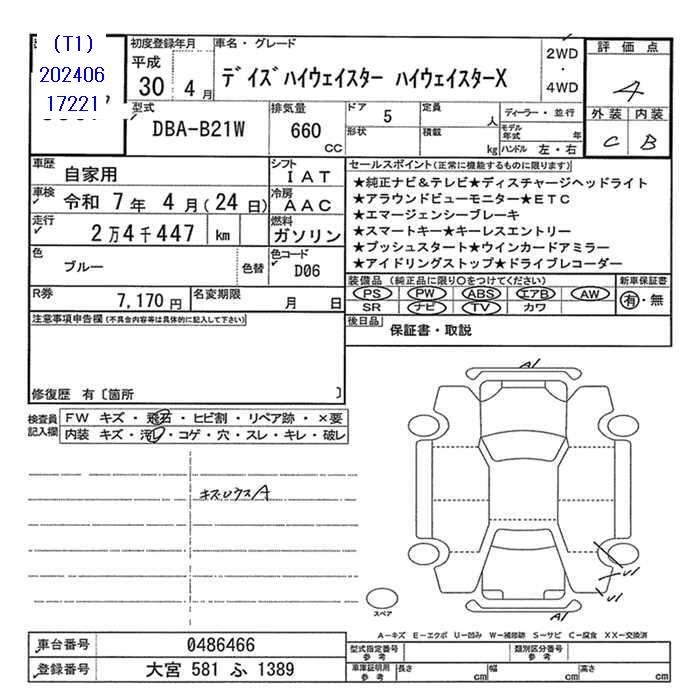 (T1)
202406
17221
初度登録年月
平成
30年 4月
車名・グレード
デイズハイウェイスター ハイウェイスターX
2WD
・
4WD
評価点
4
外装 内装
C B
型式
DBA-B21W
排気量
660
CC
ドア 5
形状
定員 人
積載 kg
ディーラー・並行
モデル年式 年
ハンドル 左・右
車歴 自家用
シフト IAT
車検 令和 7年 4月(24日)
冷房 AAC
走行 2万4千447 km
燃料 ガソリン
色 ブルー 色替
色コード D06
R券 7,170円
名変期限 月 日
セールスポイント(正常に機能するものに限ります)
★純正ナビ&テレビ★ディスチャージヘッドライト
★アラウンドビューモニター★ETC
★エマージェンシーブレーキ
★スマートキー★キーレスエントリー
★プッシュスタート★ウインカードアミラー
★アイドリングストップ★ドライブレコーダー
装備品(純正品に限り○をつけてください)
PS PW ABS エアB AW
SR ナビ TV カワ
新車保証書
有・無
後日品 保証書・取説
注意事項申告欄(不具合内容等は具体的に記入して下さい)
修復歴 有〔箇所 〕
検査員記入欄
FW キズ・飛石・ヒビ割・リペア跡・×要
内装 キズ・汚レ・コゲ・穴・スレ・キレ・破レ
キズ・ウスA
A1
U1
U1
A1
スペア
A-キズ E-エクボ U-凹み W-補修跡 S-サビ C-腐食 XX-交換済
車台番号 0486466
登録番号 大宮 581 ふ 1389
型式指定番号
参考
類別区分番号
参考
車庫証明用
参考
長さ cm 幅 cm 高さ cm